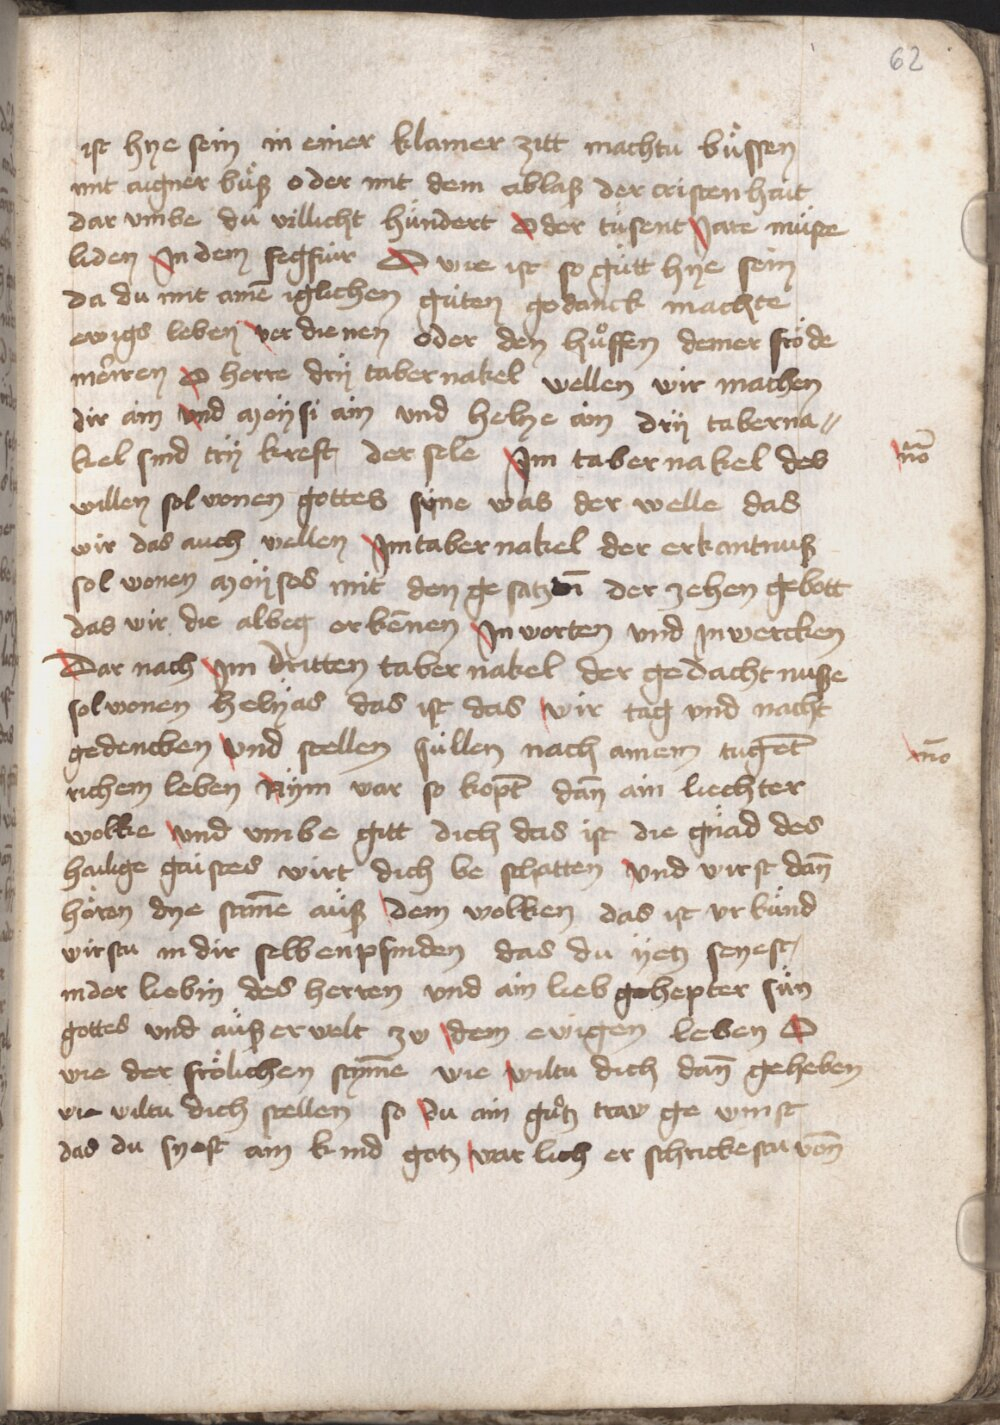 62
ist hye sein in einer klainer zitt machtu bu̇ssen
mit aigner bu̇ß oder mit dem ablaß der cristenhait
dar vmbe du villicht hundert oder tusent Jare müste
liden In dem fegfüir O wie ist so gůtt hye sein
da du mit aimē iglichen gůten gedanck machte
ewigs leben ver dienen oder den hůffen deiner fröde
mēiren O herre drij tabernakel wellen wir machen
dir ain vnd moÿsi ain vnd helye ain drij taberna〃
kel sind trij kreft der sele Im tabernakel des
nō
willen sol wonen gottes sune was der welle das
wir das auch wellen Im tabernakel der erkantnuß
sol wonen moÿses mit den gesatzen der zehen gebott
das wir die albeg erkēnen In worten vnd In wercken
Dar nach Im dritten tabernakel der gedachtnuße
sol wonen helÿas das ist das wir tag vnd nacht
gedencken vnd stellen süllen nach ainem tugēt
nō
richem leben Nÿm war so kopt dañ ain liechter
wolke vnd vmbe gitt dich das ist die gnad des
hailige gaistes wirt dich be schatten vnd wirst dañ
hören dye stimē auß dem wolken das ist vrkünd
wirstu in dir selb enpfinden das du ÿetz seyest
in der liebin des herren vnd ain lieb gehepter sün
gottes vnd außerwelt zw dem ewigen leben O
wie der frölichen stymē wie wiltu dich dañ geheben
wie wiltu dich stellen so du ain gůtz traw ge winst
das du syest ain kind gotz warlich er schrickestu von